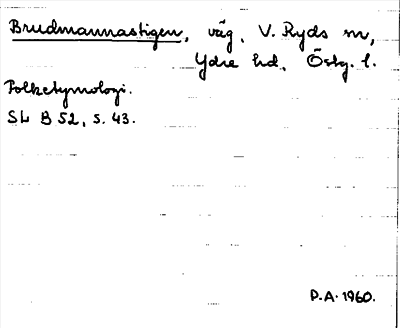 Brudmannastigen, väg, V. Ryds sn,
Ydre hd, Östg. l.
Folketymologi.
SL B 52, s. 43.
P.A. 1960.